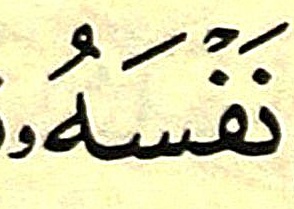 نَفۡسَهُۥ